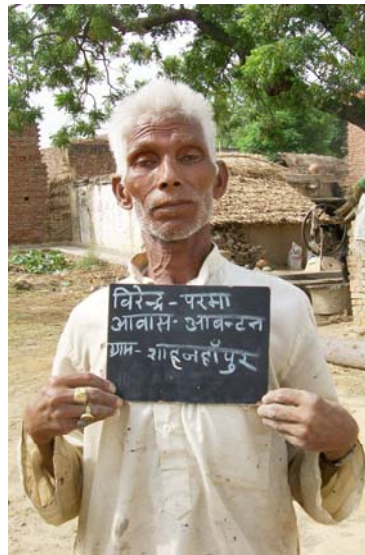 विरेन्द्र - परमा
आवास - आवन्टन
ग्राम - शाहजहाँपुर